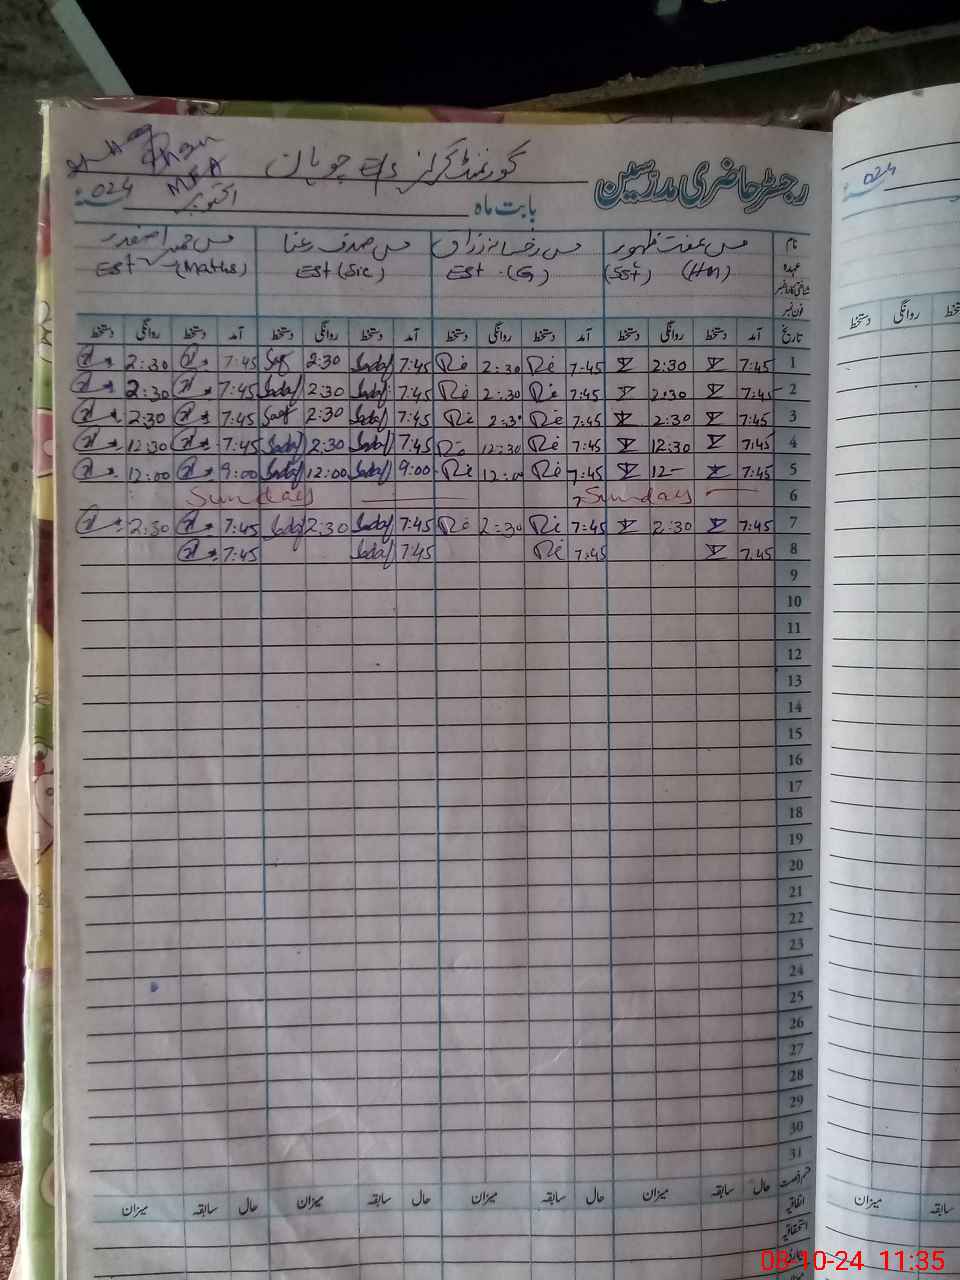 رجسٹر حاضری مدرسین گورنمنٹ گرلز E/S چوہان
MEA
بابت ماہ اکتوبر 024
نام مس عفت ظہور مس رخسانہ رزاق مس صدف رعنا
عہدہ (SST) (HM) EST (G) EST (Sie) EST (Maths)
شناختی کارڈ نمبر
فون نمبر
تاریخ آمد دستخط روانگی دستخط آمد دستخط روانگی دستخط آمد دستخط روانگی دستخط آمد دستخط روانگی دستخط
1 7:45 2:30 7:45 2:30 7:45 Sadaf 2:30 7:45 2:30
2 7:45 2:30 7:45 2:30 7:45 Sadaf 2:30 Sadaf 7:45 2:30
3 7:45 2:30 7:45 2:3 7:45 Sadaf 2:30 7:45 2:30
4 7:45 12:30 7:45 12:30 7:45 Sadaf 2:30 Sadaf 7:45 12:30
5 7:45 12- 7:45 12:00 9:00 Sadaf 12:00 Sadaf 9:00 12:00
6 Sunday Sunday
7 7:45 2:30 7:45 2:30 7:45 Sadaf 2:30 Sadaf 7:45 2:30
8 7:45 7:45 7:45 Sadaf 7:45
9
10
11
12
13
14
15
16
17
18
19
20
21
22
23
24
25
26
27
28
29
30
31
حال سابقہ میزان حال سابقہ میزان حال سابقہ میزان حال سابقہ میزان
اتفاقیہ
استحقاقیہ
024
روانگی دستخط
میزان سابقہ
08-10-24 11:35